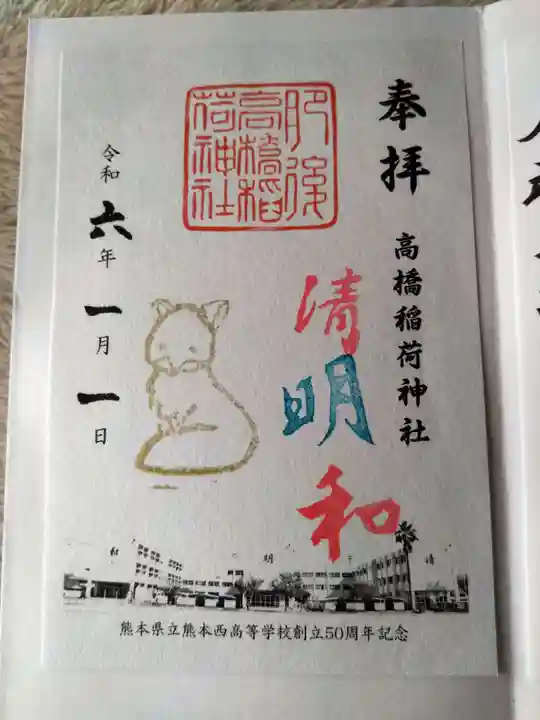 奉拝
高橋稲荷神社
清明和
肥後
高橋稲
荷神社
令和六年一月一日
清 明 和
熊本県立熊本西高等学校創立50周年記念